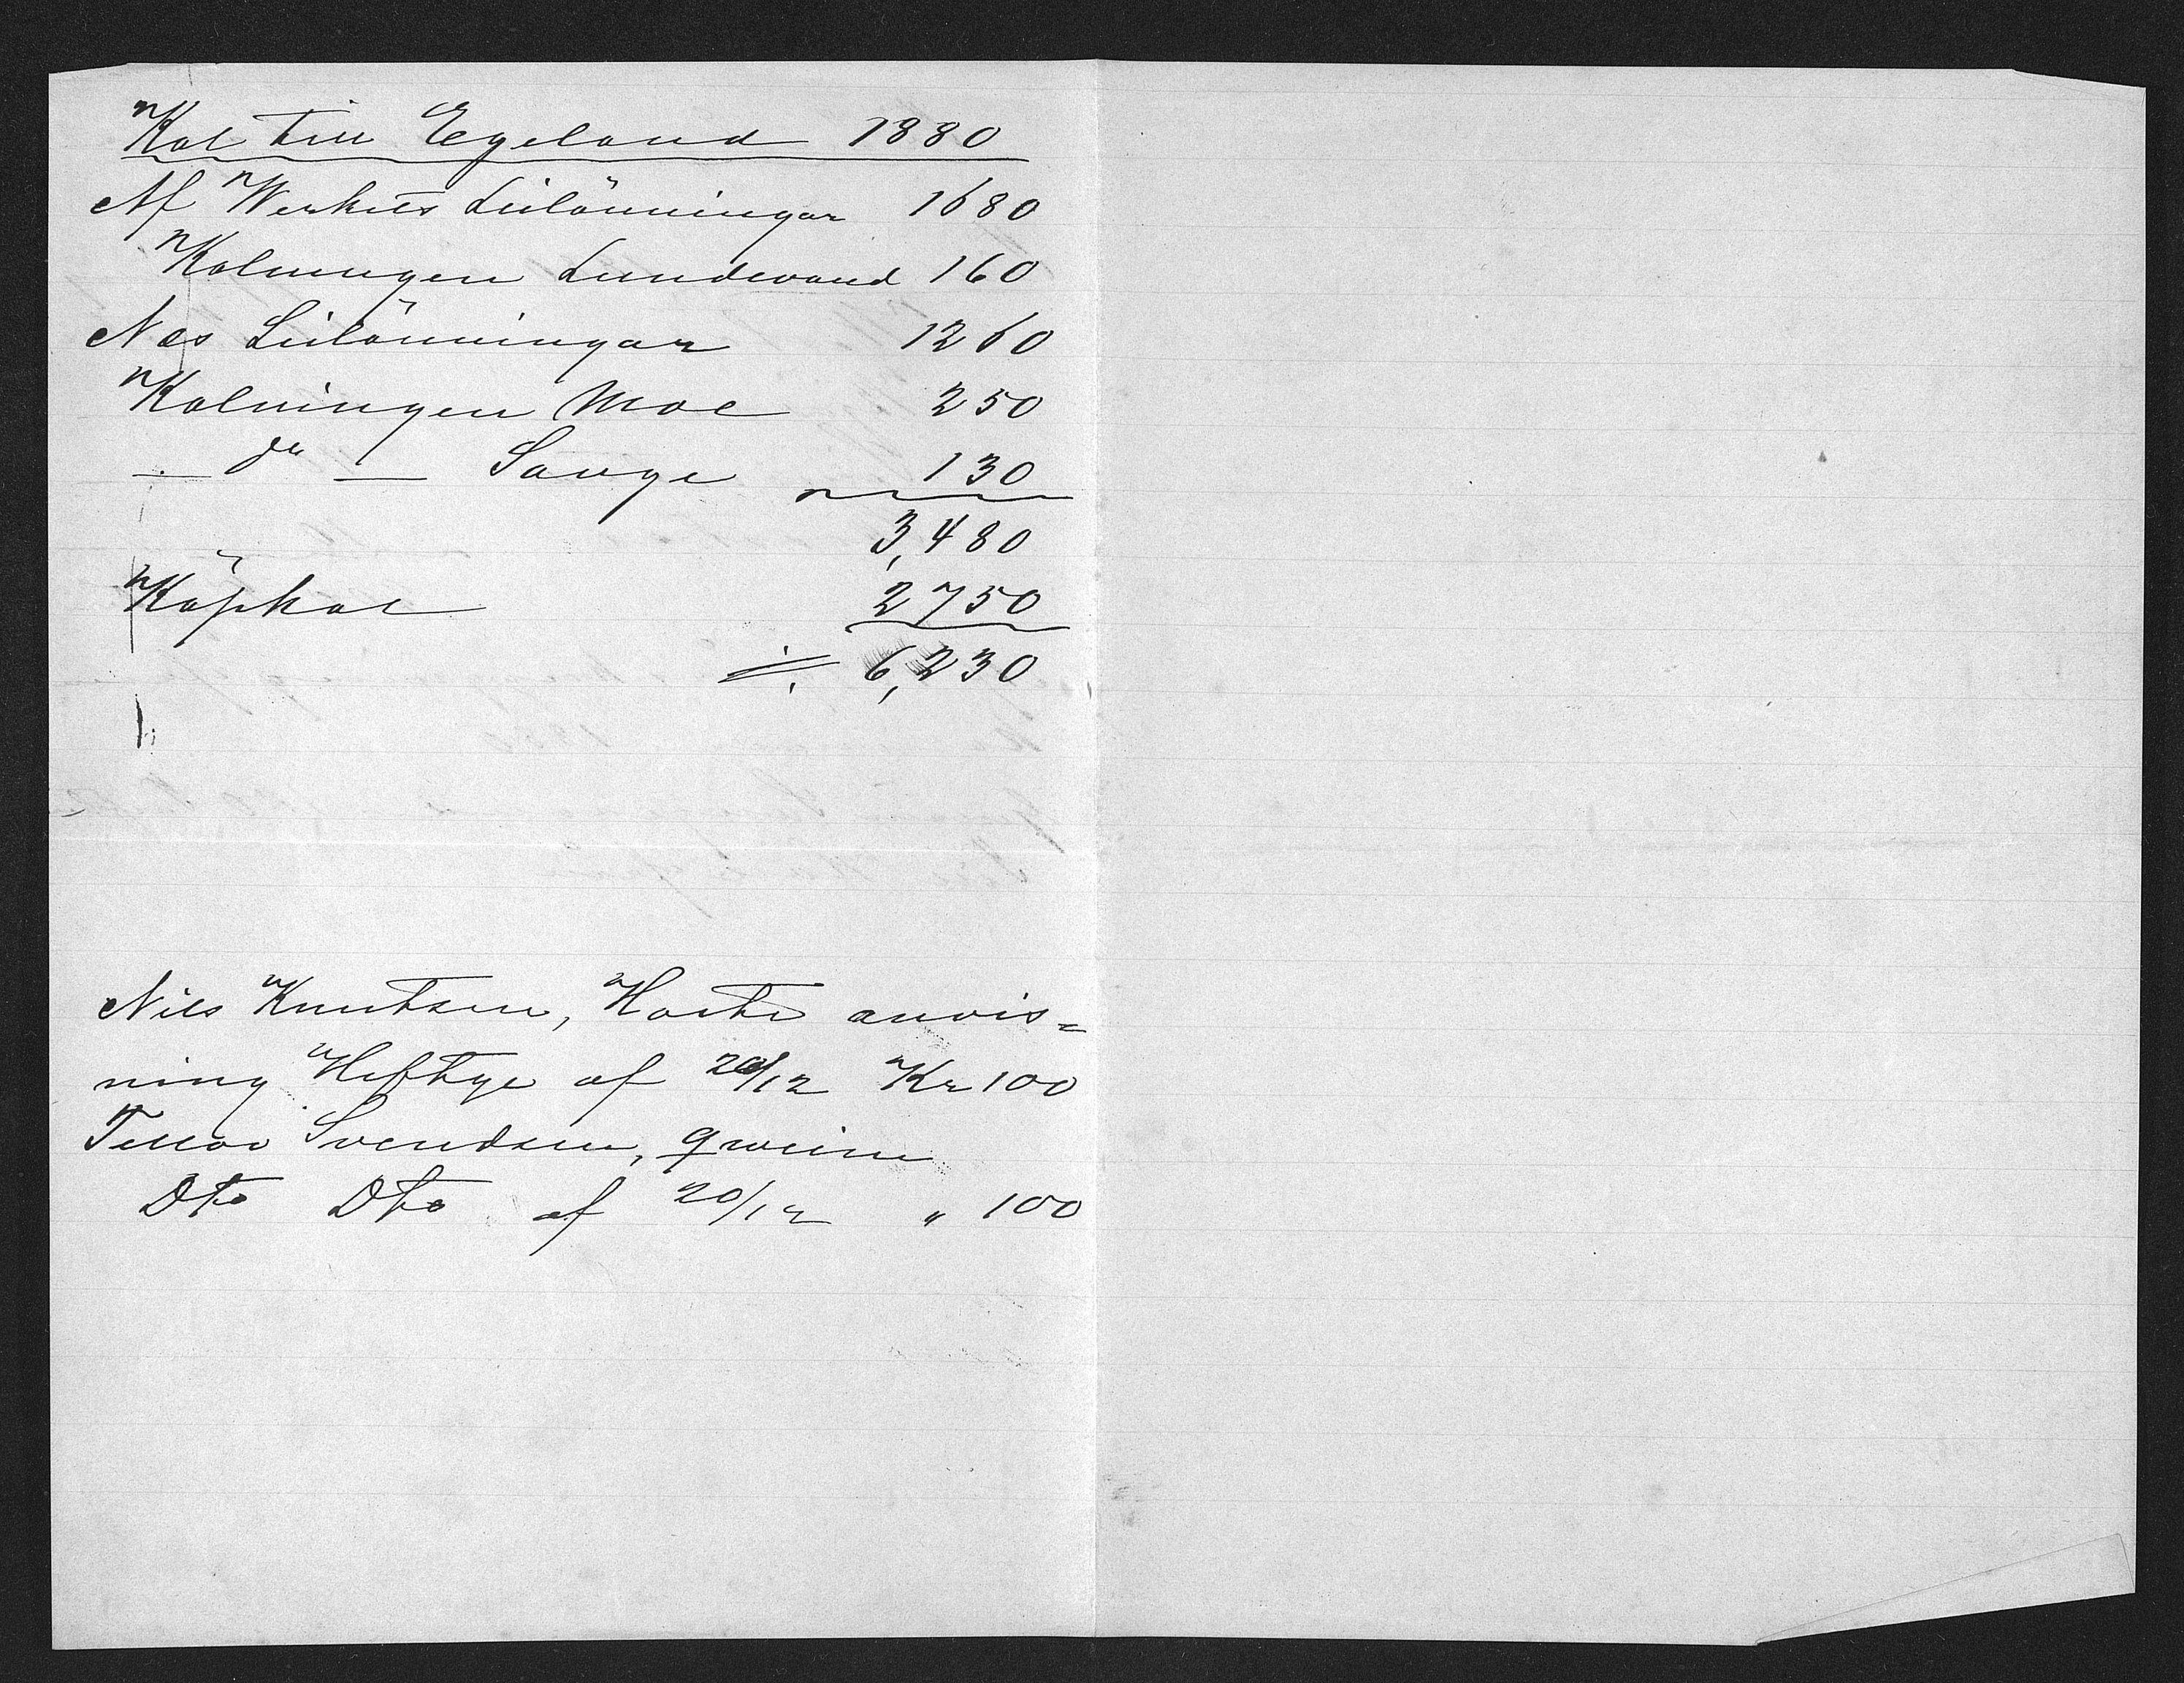 Kol till Egeland 1880
Af Werkets Leilänningar 1680
Kolningen Lundevand 160
Næs Leilänningar 1260
Kolningen Moe 250
— do — Sauge 130
3,480
Köpkol 2750
% 6,230
Nils Knutsen, anvis=
ning Heftye af 20/12 Kr 100
Tellov Svendsen,
Dto Dto af 20/12 " 100